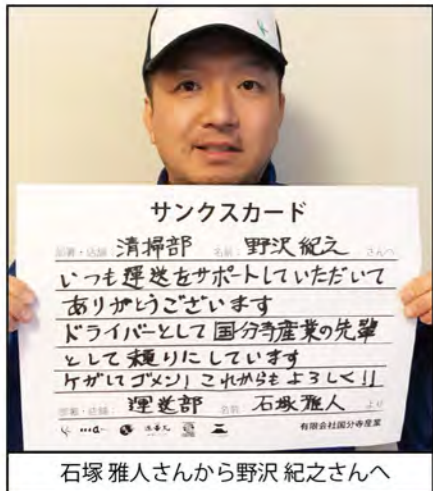 サンクスカード
部署・店舗 清掃部 名前 野沢 紀之 さんへ
いつも運送をサポートしていただいて
ありがとうございます
ドライバーとして国分寺産業の先輩
として頼りにしています
ケガしてゴメン！これからもよろしく!!
部署・店舗 運送部 名前 石塚 雅人 より
有限会社国分寺産業
石塚 雅人さんから野沢 紀之さんへ